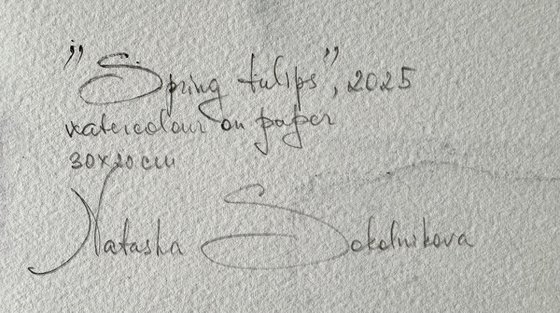 "Spring tulips", 2025
watercolour on paper
30x20 cm
Natasha Sokolnikova